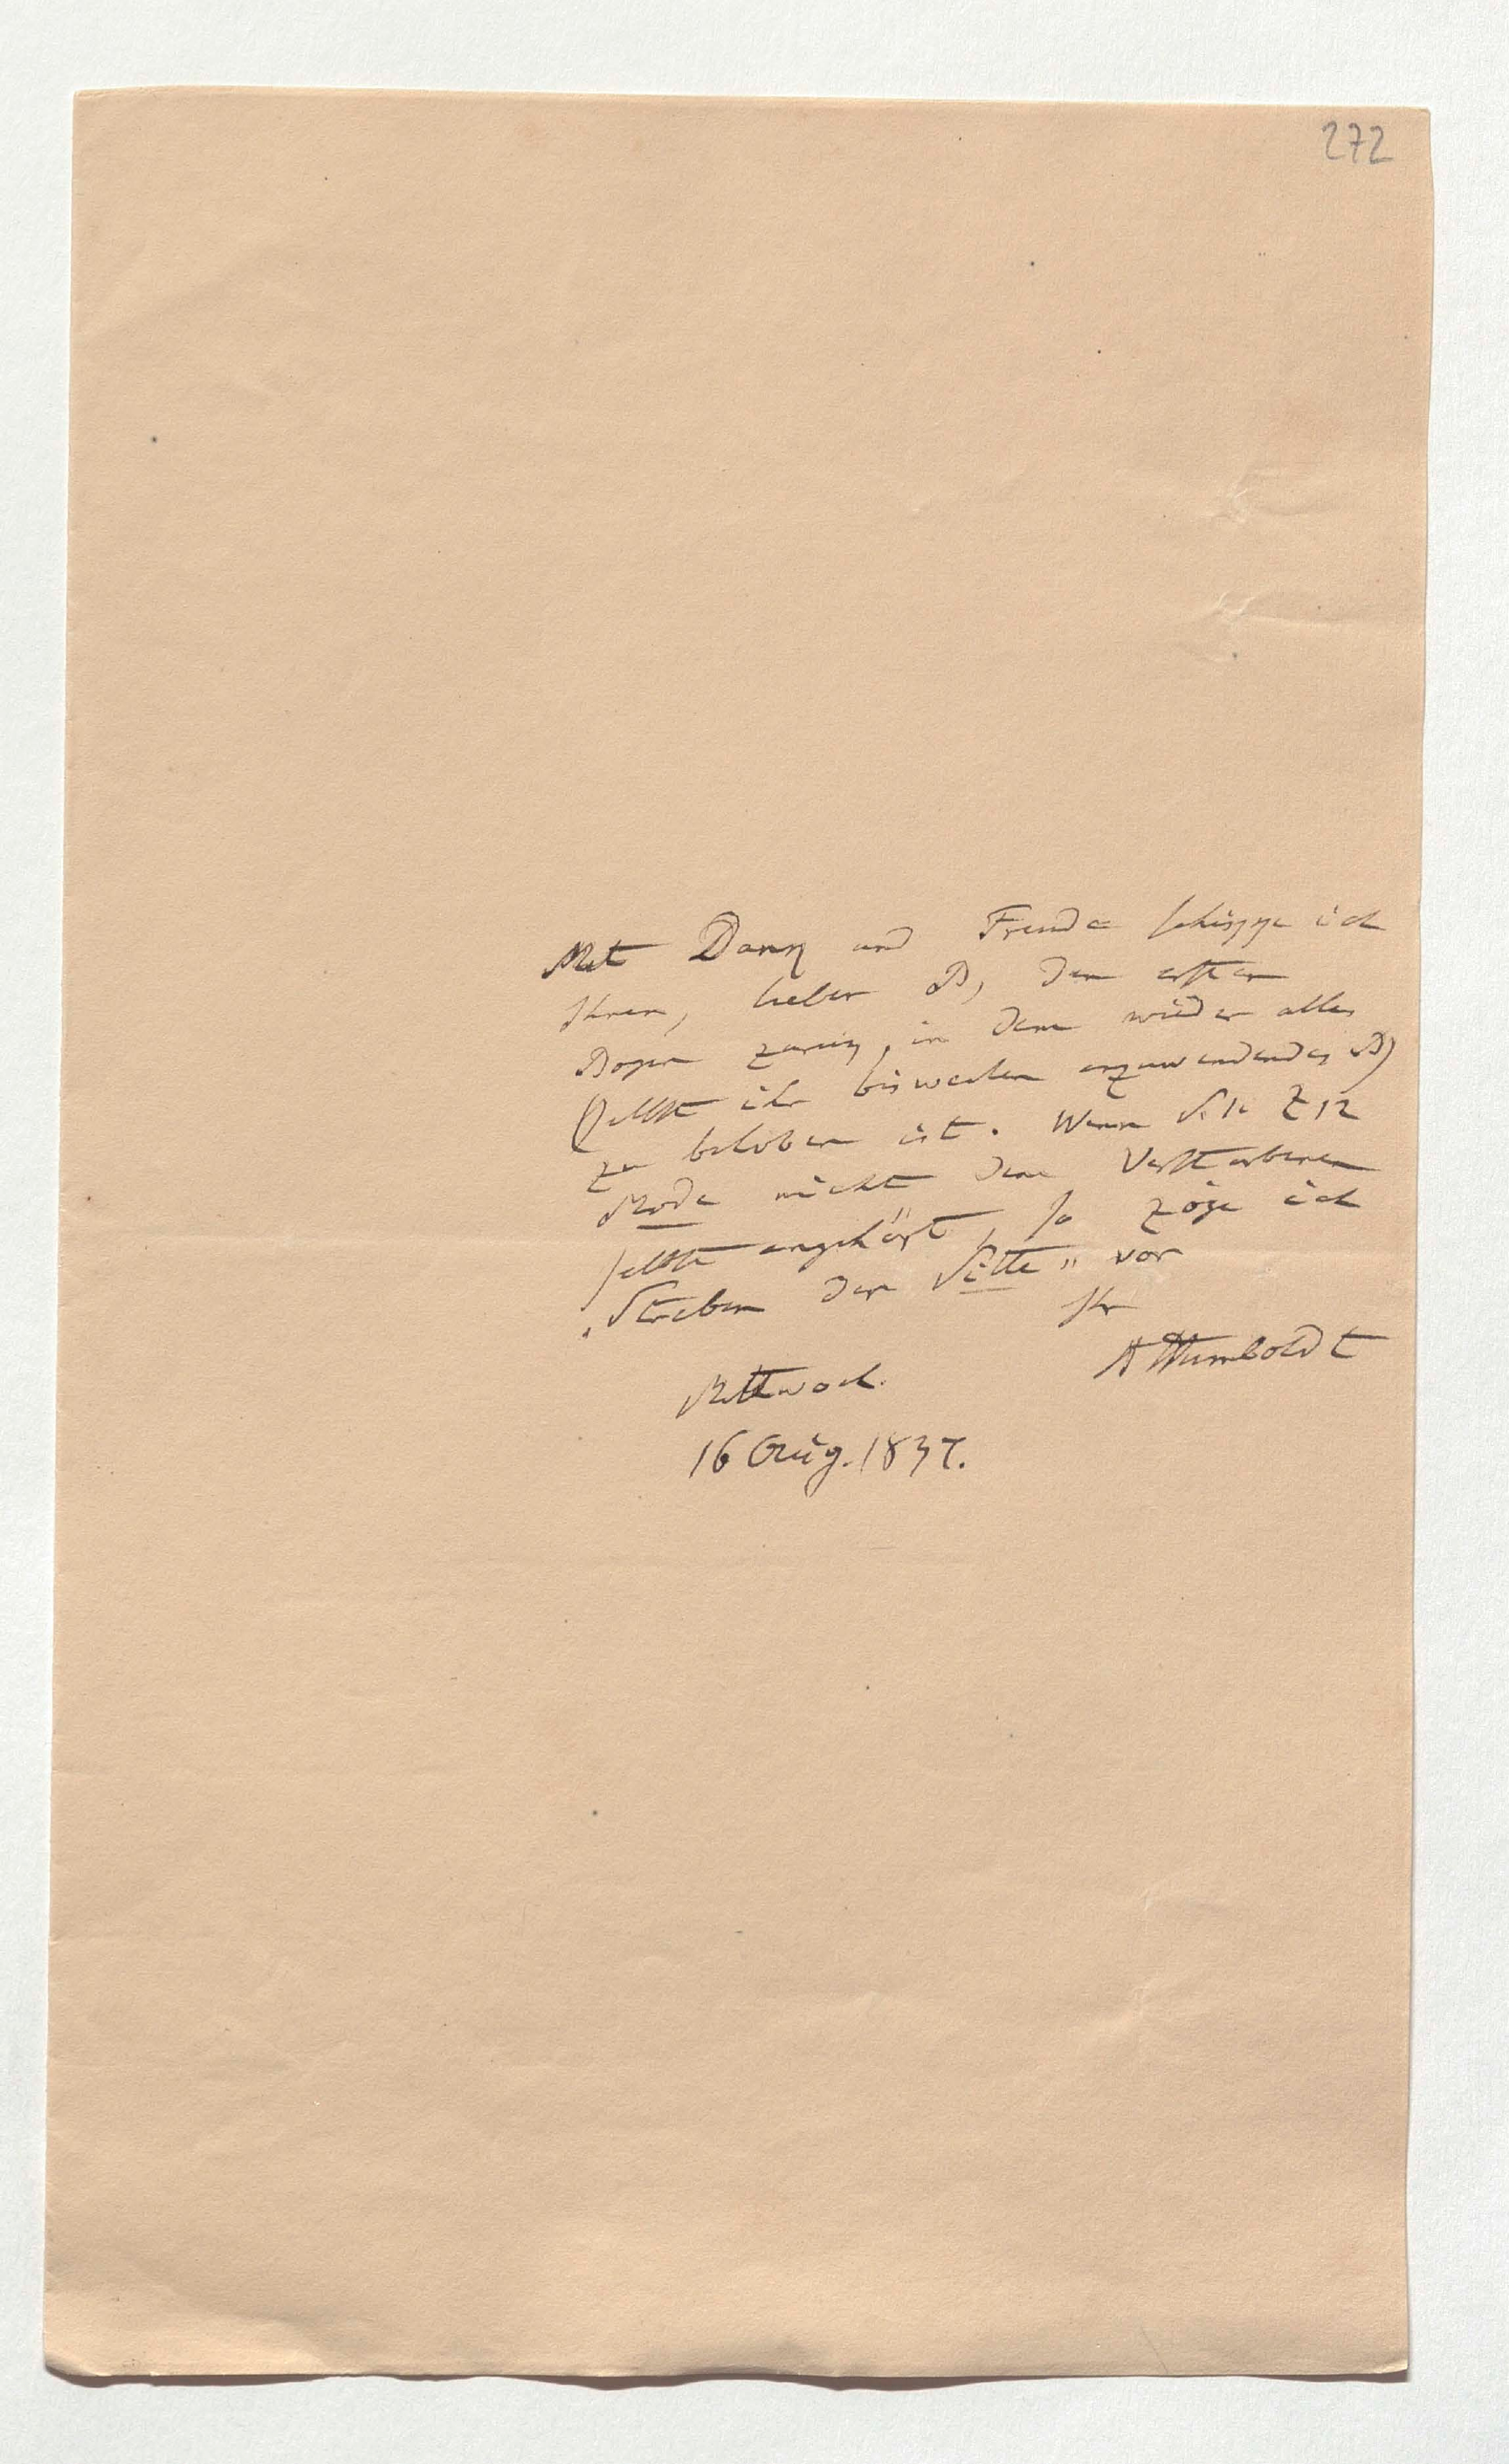 272
Mit Dank und Freude schikke ich
Ihnen, lieber B, den ersten
Bogen zurük, in dem wieder alles
(selbst ihr bisweilen anzuwendendes B)
zu beloben ist. Wenn S. Z 12
Mode nicht dem Verstorbenen
selbst angehört, so zöge ich
„Streben der Sitte" vor
Ihr
AHumboldt
Mittwoch.
16 Aug. 1837.